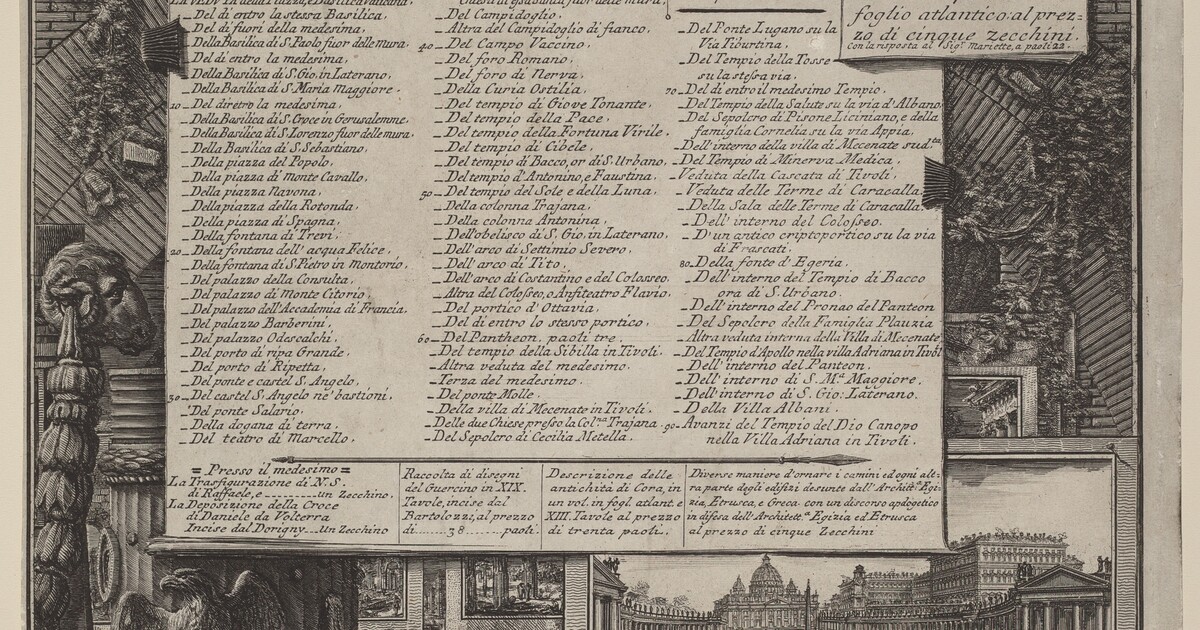 LA VEDUTA della Piazza, e Basilica Vaticana,
_Del di entro la stessa Basilica,
_Del di fuori della medesima,
_Della Basilica di S. Paolo fuor delle mura,
_Del di entro la medesima,
_Della Basilica di S. Gio, in Laterano,
_Della Basilica di S. Maria Maggiore,
10_Del diretro la medesima,
_Della Basilica di S. Croce in Gerusalemme,
_Della Basilica di S. Lorenzo fuor delle mura,
_Della Basilica di S. Sebastiano,
_Della piazza del Popolo,
_Della piazza di monte Cavallo,
_Della piazza Navona,
_Della piazza della Rotonda,
_Della piazza di Spagna,
_Della fontana di Trevi,
20_Della fontana dell'acqua Felice,
_Della fontana di S. Pietro in Montorio,
_Del palazzo della Consulta,
_Del palazzo di Monte Citorio,
_Del palazzo dell'Accademia di Francia,
_Del palazzo Barberini,
_Del palazzo Odescalchi,
_Del porto di ripa Grande,
_Del porto di Ripetta,
_Del ponte e castel S. Angelo,
30_Del castel S. Angelo ne' bastioni,
_Del ponte Salario,
_Della dogana di terra,
_Del teatro di Marcello,
fuor delle mura,
_Del Campidoglio,
_Altra del Campidoglio di fianco,
40_Del Campo Vaccino,
_Del foro Romano,
_Del foro di Nerva,
_Della Curia Ostilia,
_Del tempio di Giove Tonante,
_Del tempio della Pace,
_Del tempio della Fortuna Virile,
_Del tempio di Cibele,
_Del tempio di Bacco, or di S. Urbano,
_Del tempio d'Antonino, e Faustina,
50_Del tempio del Sole e della Luna,
_Della colonna Trajana,
_Della colonna Antonina,
_Dell'obelisco di S. Gio, in Laterano,
_Dell'arco di Settimio Severo,
_Dell'arco di Tito,
_Dell'arco di Costantino e del Colosseo,
_Altra del Colosseo, o Anfiteatro Flavio,
_Del portico d'Ottavia,
_Del di entro lo stesso portico,
60_Del Pantheon, paoli tre,
_Del tempio della Sibilla in Tivoli,
_Altra veduta del medesimo,
_Terza del medesimo,
_Del ponte Molle,
_Della villa di Mecenate in Tivoli,
_Delle due Chiese presso la Col.na Trajana
_Del Sepolcro di Cecilia Metella,
_Del Ponte Lugano su la
Via Tiburtina,
_Del Tempio della Tosse
su la stessa via.
70_Del di entro il medesimo Tempio.
_Del Tempio della Salute su la via d'Albano
_Del Sepolcro di Pisone Liciniano, e della
famiglia Cornelia su la via Appia,
_Dell'interno della villa di Mecenate sud.ta
_Del Tempio di Minerva Medica,
_Veduta della Cascata di Tivoli,
_Veduta delle Terme di Caracalla,
_Della Sala delle Terme di Caracalla.
_Dell'interno del Colosseo.
_D'un antico criptoportico su la via
di Frascati,
80_Della fonte d'Egeria.
_Dell'interno del Tempio di Bacco
ora di S. Urbano.
_Dell'interno del Pronao del Panteon
_Del Sepolcro della Famiglia Plauzia
_Altra veduta interna della Villa di Mecenate
_Del Tempio d'Apollo nella villa Adriana in Tivoli
_Dell'interno del Panteon.
_Dell'interno di S. M.a Maggiore,
_Dell'interno di S. Gio: Laterano.
_Della Villa Albani.
90_Avanzi del Tempio del Dio Canopo
nella Villa Adriana in Tivoli.
foglio atlantico al prez=
zo di cinque zecchini.
Con la risposta al Sig.r Mariette, a paoli 22.
= Presso il medesimo =
La Trasfigurazione di N. S.
di Raffaele, e ........ un Zecchino.
La Deposizione della Croce
di Daniele da Volterra
Incise dal Dorigny ... un Zecchino
Raccolta di disegni
del Guercino in XIX.
Tavole, incise dal
Bartolozzi, al prezzo
di ........ 38 ...... paoli.
Descrizione delle
antichità di Cora, in
un vol. in fogl. atlant. e
XIII. Tavole al prezzo
di trenta paoli.
Diverse maniere d'ornare i camini ed ogni alt-
ra parte degli edifizi desunte dall'Architt.a Egi-
zia, Etrusca, e Greca con un discorso apologetico
in difesa dell'Architett.a Egizia ed Etrusca
al prezzo di cinque Zecchini